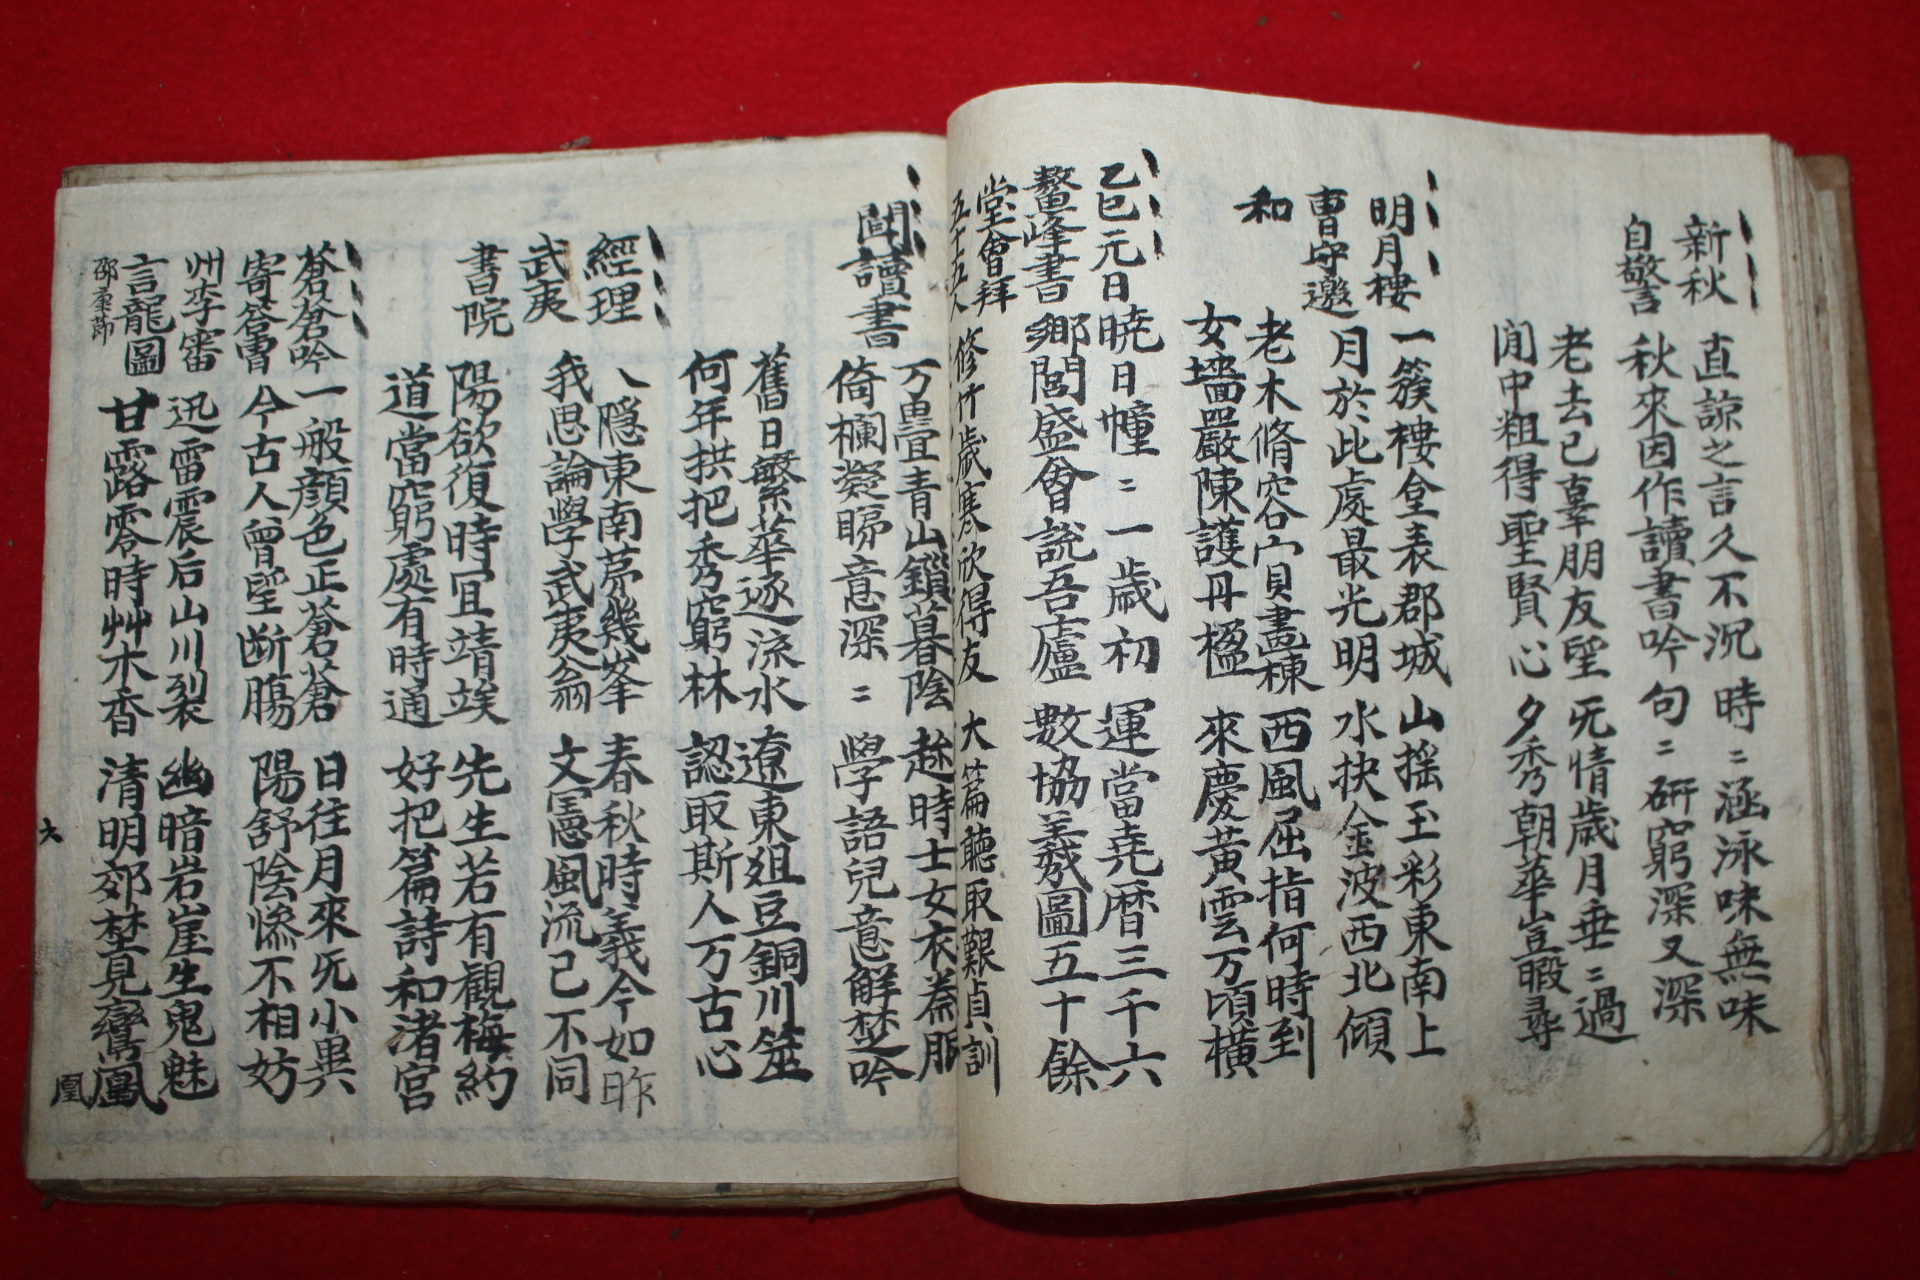 新秋
自警
直諒之言久不沉 時〻涵泳味無味
秋來因作讀書吟 句〻研窮深又深
老去已辜朋友望 旡情歲月垂〻過
閒中粗得聖賢心 夕秀朝華豈暇尋
明月樓
曹守邀
和
一簇樓臺表郡城 山搖玉彩東南上
月於此處最光明 水抉金波西北傾
老木脩容穴畫棟 西風屈指何時到
女墻嚴陳護丹楹 來慶黃雲万頃橫
乙巳元日
鰲峰書
堂會拜
五十五人
曉日曈〻一歲初 運當堯曆三千六
鄉閭盛會說吾廬 數協羲圖五十餘
修竹歲寒欣得友 大篇聽取艱貞訓
聞讀書
万疊青山鎖暮陰 趂時士女衣羞服
倚欄凝睇意深〻 學語兒意解楚吟
舊日繁華逐流水 遼東俎豆銅川筮
何年拱把秀窮林 認取斯人万古心
經理
武夷
書院
隱東南夢幾峯 春秋時義今如昨
我思論學武夷翁 文憲風流己不同
陽欲復時冝靖竢 先生若有觀梅約
道當窮處有時通 好把篇詩和渚宮
蒼蒼吟
寄答曹
州李審
言龍圖
邵康節
一般顔色正蒼蒼 日往月來旡小異
今古人曾望断膓 陽舒陰慘不相妨
迅雷震后山川裂 幽暗岩崖生鬼魅
甘露零時艸木香 清明郊埜見鸞鳳
凰
六